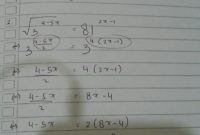 2. √3^(4-5x) = 81^(2x-1)
3^((4-5x)/2) = 3^(4(2x-1))
(4-5x)/2 = 4(2x-1)
(4-5x)/2 = 8x-4
4-5x = 2(8x-4)